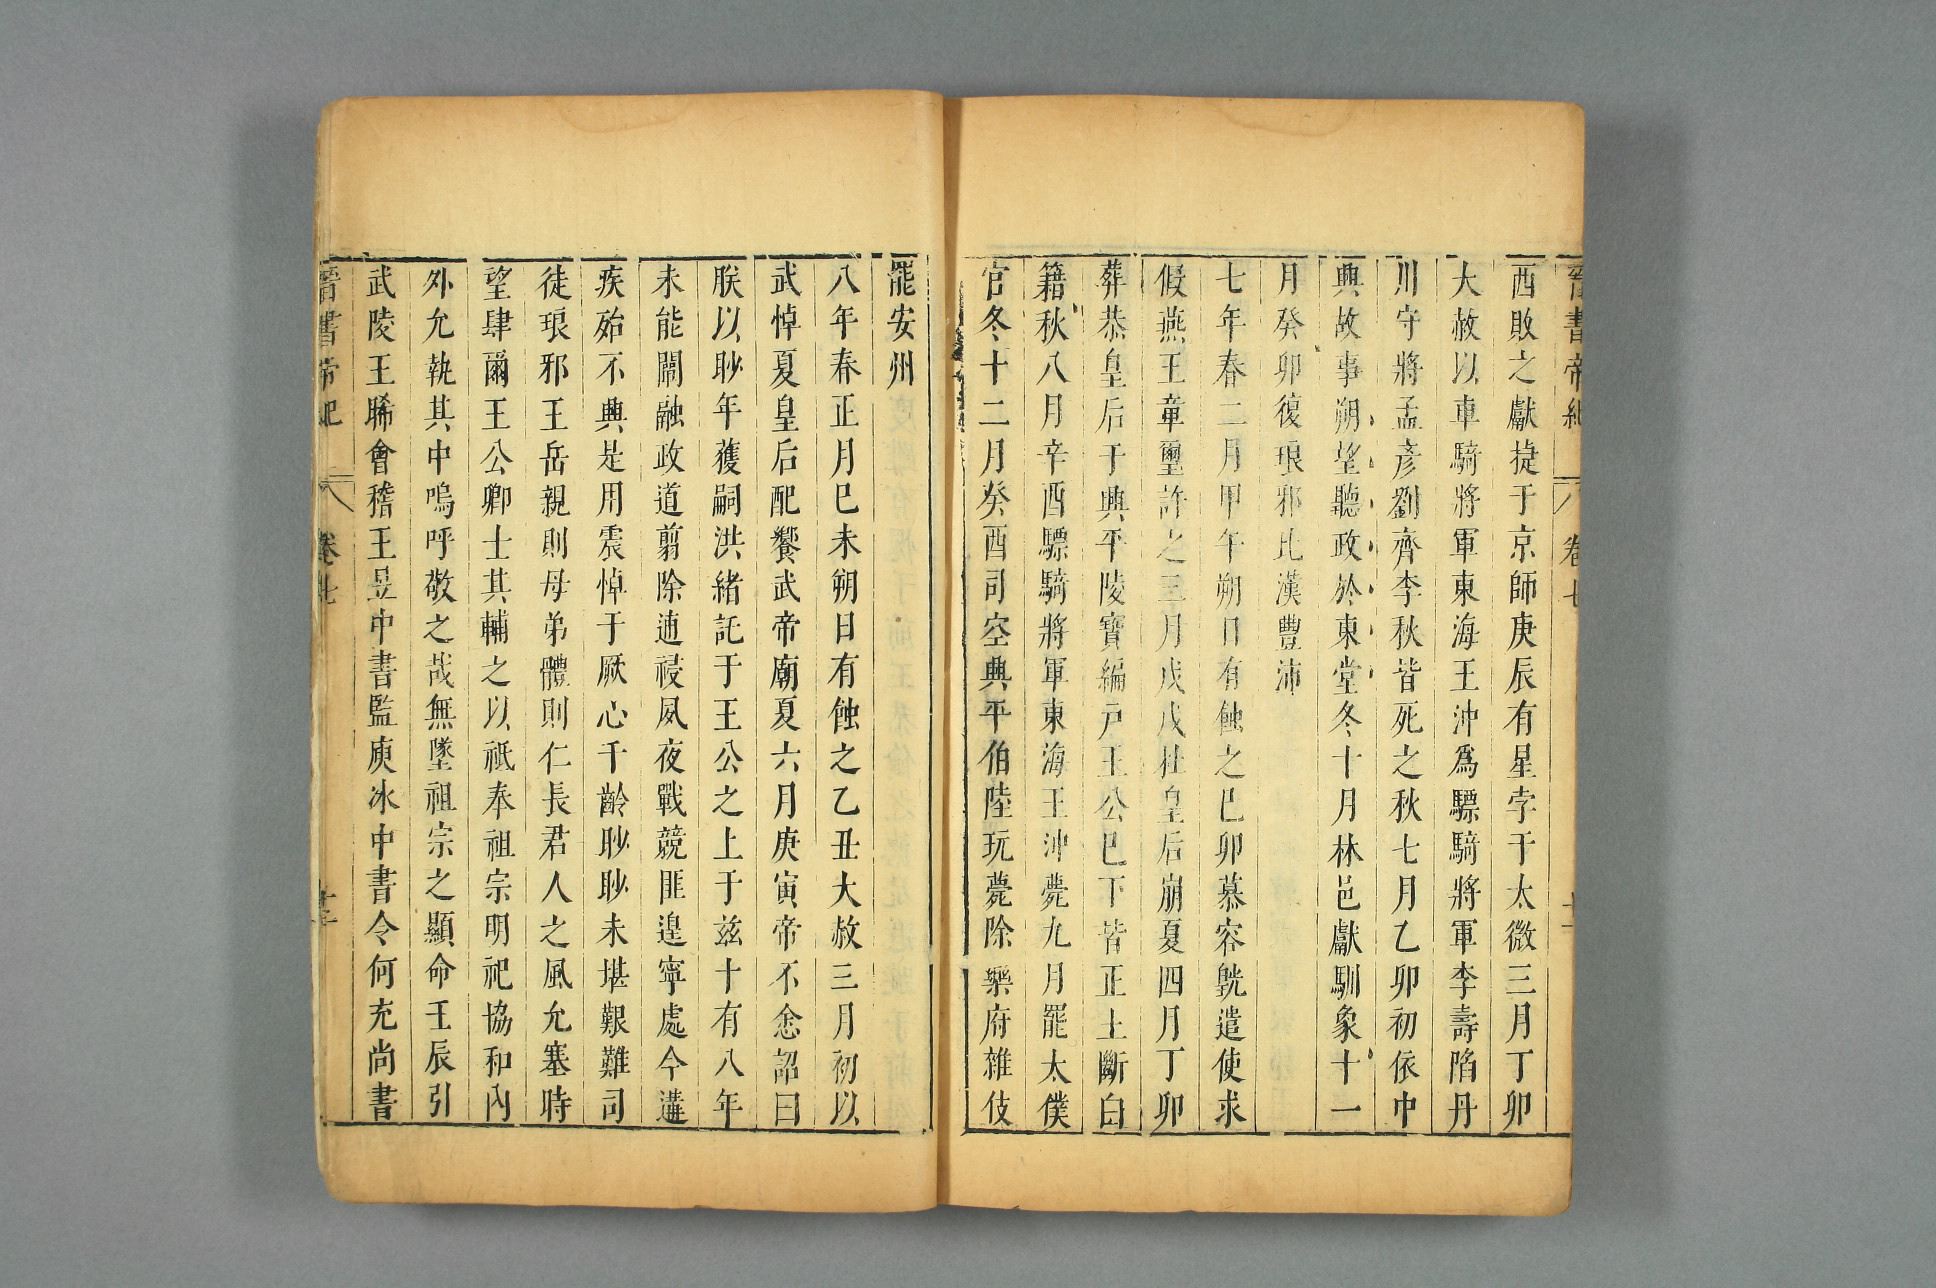 晉書帝紀 卷七 十一
酉敗之獻捷于京師庚辰有星孛于太微三月丁卯
大赦以車騎將軍東海王沖爲驃騎將軍李壽陷丹
川守將孟彥劉齊李秋皆死之秋七月乙卯初依中
興故事朔望聽政於東堂冬十月林邑獻馴象十一
月癸卯復琅邪比漢豐沛
七年春二月甲午朔日有蝕之巳卯慕容皝遣使求
假燕王章璽許之三月戊戌杜皇后崩夏四月丁卯
葬恭皇后于興平陵實編戶王公巳下皆正土斷白
籍秋八月辛酉驃騎將軍東海王沖薨九月罷太僕
官冬十二月癸酉司空興平伯陸玩薨除樂府雜伎
罷安州
八年春正月巳未朔日有蝕之乙丑大赦三月初以
武悼夏皇后配饗武帝廟夏六月庚寅帝不悆詔曰
朕以眇年獲嗣洪緒託于王公之上于茲十有八年
未能闡融政道翦除逋祲夙夜戰兢匪遑寧處今遘
疾殆不興是用震悼于厥心千齡眇眇未堪艱難司
徒琅邪王岳親則母弟體則仁長君人之風允塞時
望肆爾王公卿士其輔之以祗奉祖宗明祀協和內
外允執其中嗚呼敬之哉無墜祖宗之顯命壬辰引
武陵王晞會稽王昱中書監庾冰中書令何充尚書
晉書帝紀 卷七 十二